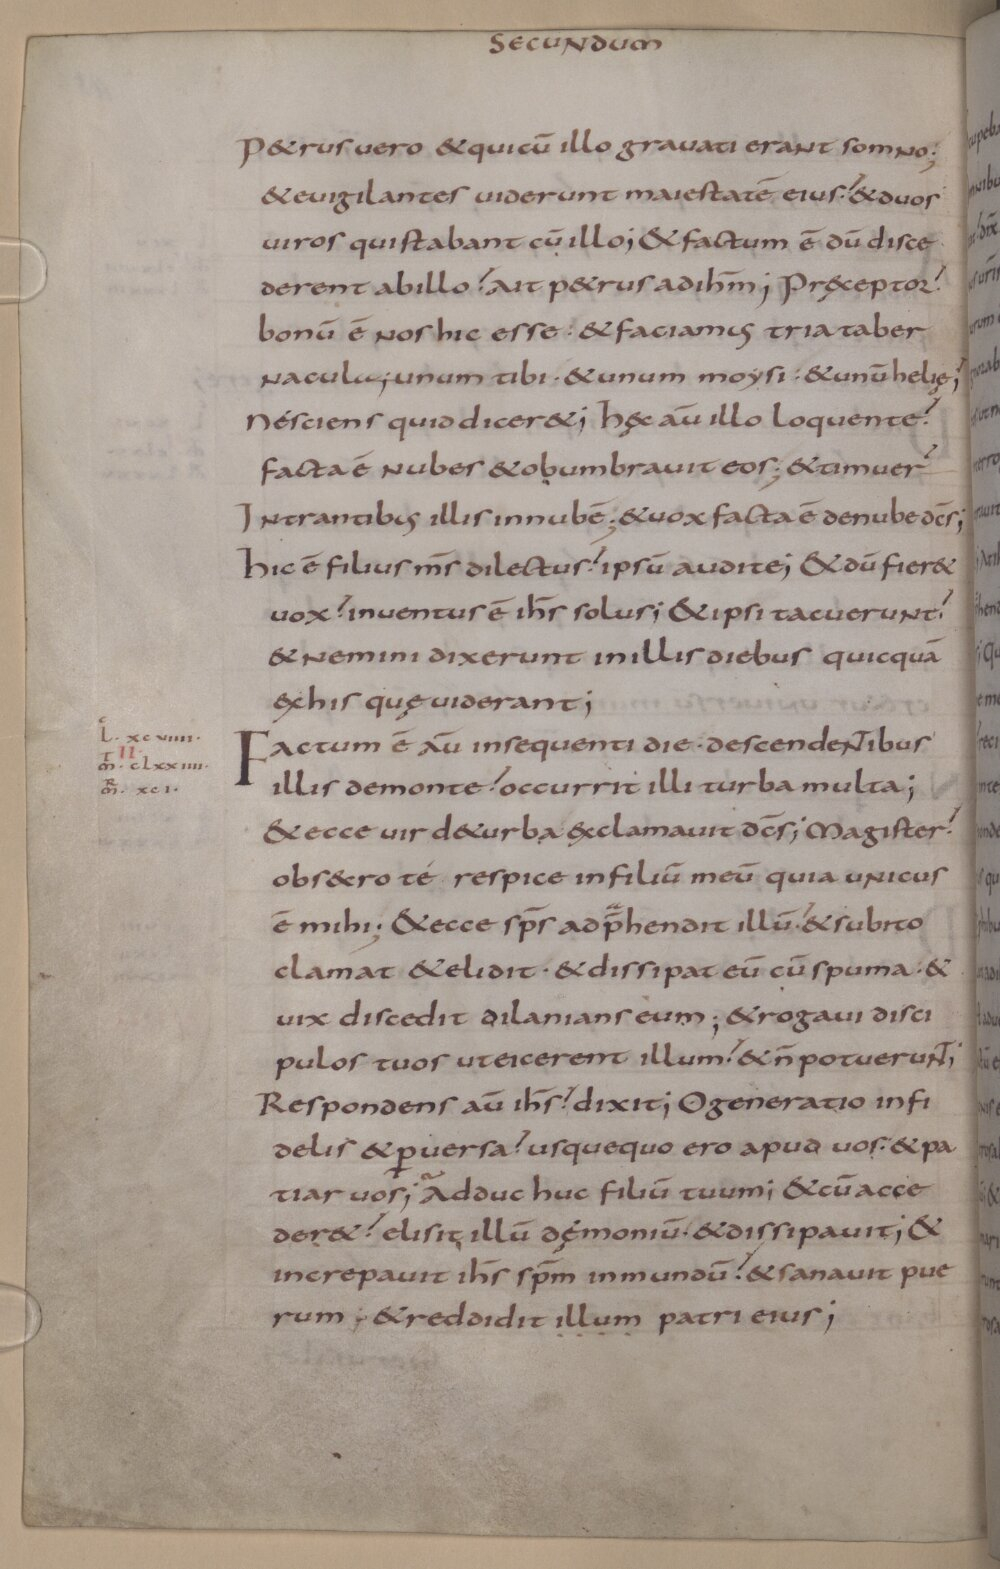 SECUNDUM
P&rus uero & qui cū illo grauati erant somno;
& euigilantes uiderunt maiestatē eius; & duos
uiros qui stabant cū illo; & factum ē dū disce
derent ab illo? Ait p&rus ad ihm̄; Pręceptor?
bonū ē nos hic esse· & faciamus tria taber
nacula; unum tibi· & unum moysi· & unū helię;
Nésciens quid dicer&; hęc aū illo loquente?
facta ē nubes & obumbrauit eos; & timuer̄
Intrantibus illis in nubē; & uox facta ē de nube dc̄s;
hic ē filius ms̄ dilectus? ipsū audite; & dū fier&
uox? inuentus ē ihs̄ solus; & ipsi tacuerunt?
& nemini dixerunt in illis diebus quicquā
ex his quę uiderant;
L· xcuiiii·
II·
m̄· clxxiiii·
m̄· xci·
Factum ē aū in sequenti die· descendentibus
illis de monte? occurrit illi turba multa;
& ecce uir d& urba exclamauit dc̄s; Magister?
obsecro té respice in filiū meū quia unicus
ē mihi; & ecce sps̄ adp̄hendit illū? & subito
clamat & elidit· & dissipat eū cū spuma· &
uix discedit dilanians eum; & rogaui disci
pulos tuos ut eicerent illum? & n̄ potuerunt;
Respondens aū ihs̄? dixit; O generatio infi
delis & ꝑuersa? usquequo ero apud uos· & pa
tiar uos; Adduc huc filiū tuum; & cū acce
der&? elisit illū dęmoniū· & dissipauit; &
increpauit ihs̄ spm̄ inmundū? & sanauit pue
rum; & reddidit illum patri eius;